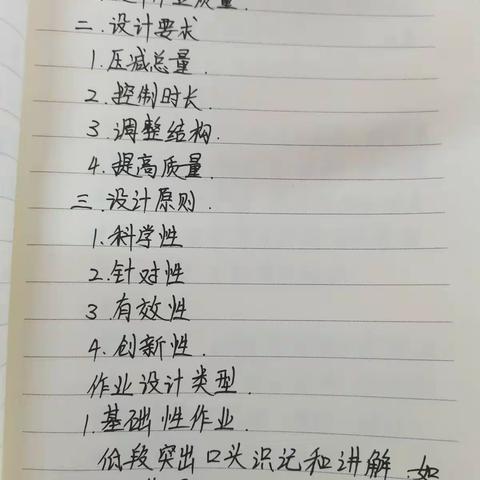 质量.
二.设计要求
1.压减总量.
2.控制时长
3.调整结构.
4.提高质量.
三.设计原则.
1.科学性
2.针对性
3.有效性
4.创新性.
作业设计类型.
1.基础性作业.
低段突出口头识记和讲解.如